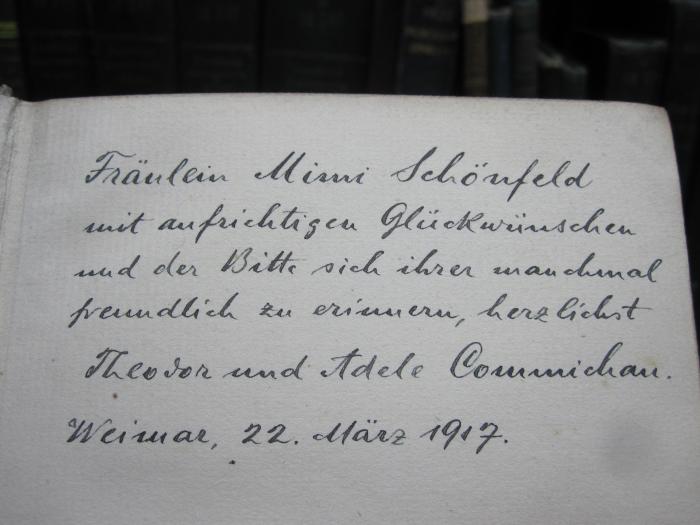 Fräulein Mimi Schönfeld
mit aufrichtigen Glückwünschen
und der Bitte sich ihrer manchmal
freundlich zu erinnern, herzlichst
Theodor und Adele Commichau.
Weimar, 22. März 1917.